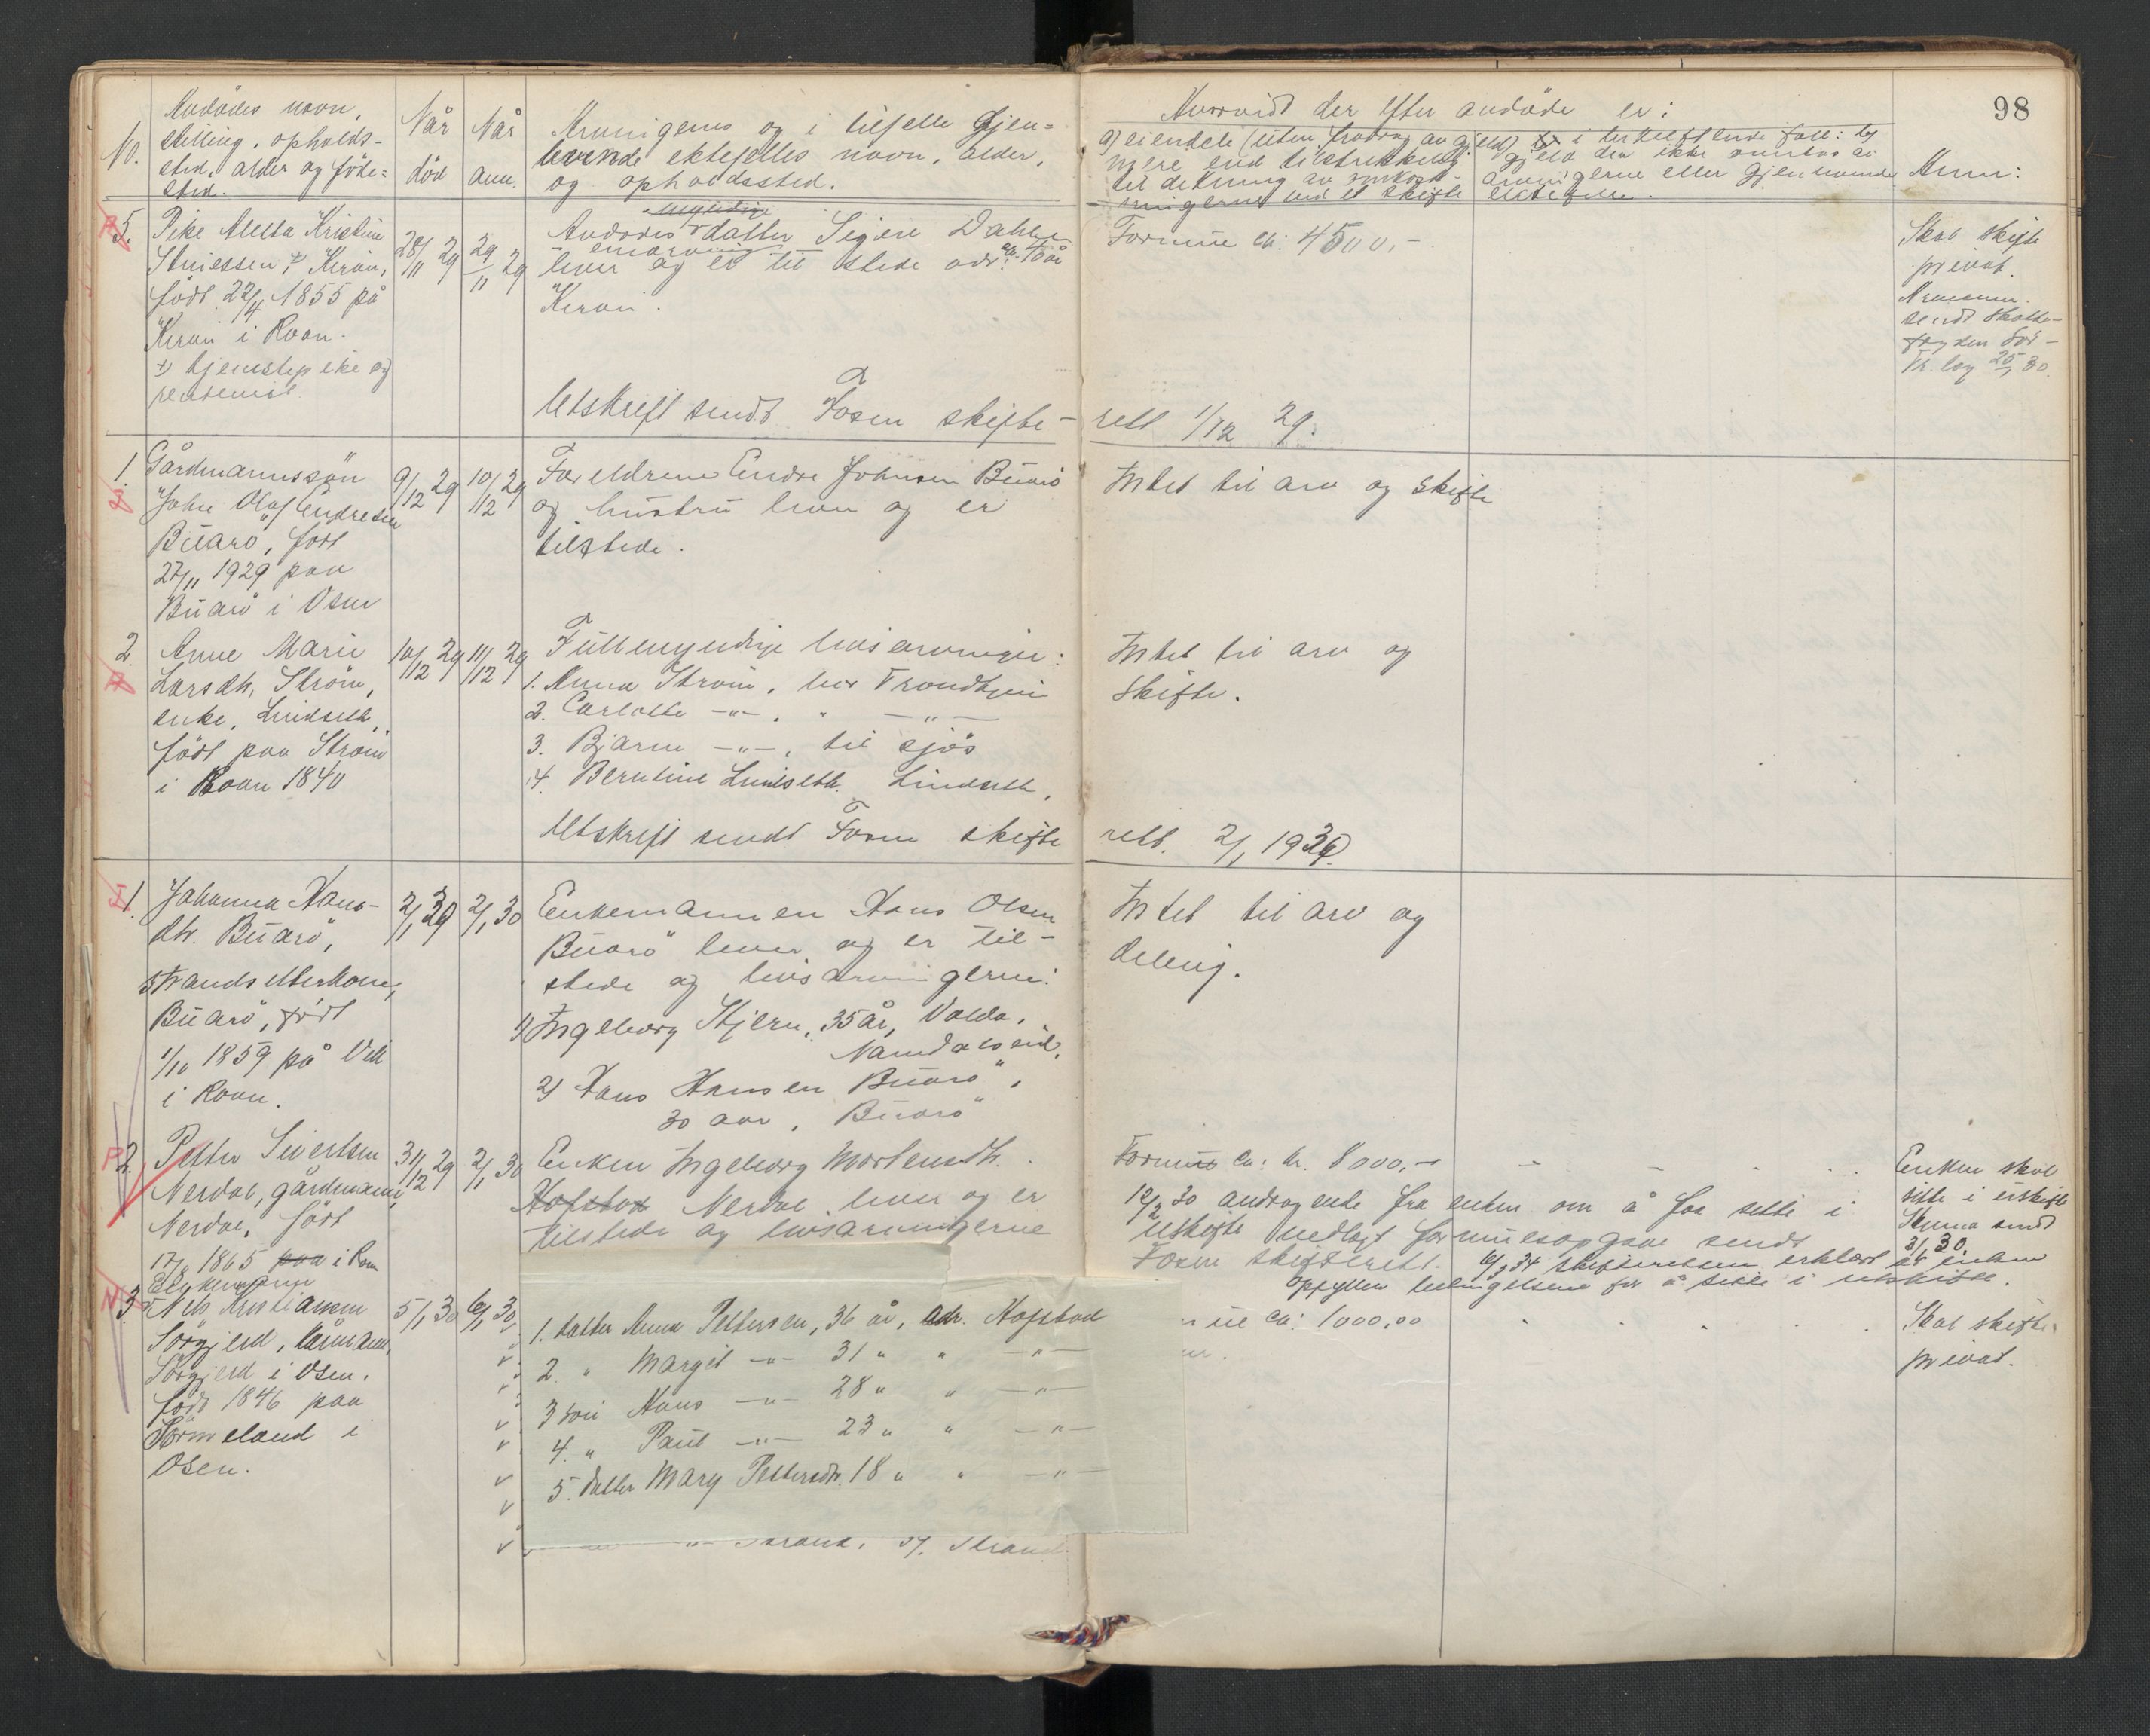 98
No.
Avdødes navn,
stilling, opholds-
sted, alder og føde-
sted.
Når
død
Når
anm.
Arvingenes og i tilfelle Gjen-
levende ektefelles navn, alder,
og opholdssted.
Hvorvidt der efter avdøde er:
a) eiendele (uten fradrag av gjeld)
mere end tilstrekkelig
til dekning av omkost-
ningerne ved et skifte
i tilfelle
gjeld der ikke
arvingerne eller gjenlevende
ektefelle.
Anm:
5.
Pike Aletta Kristine
Kiran,
født 22/4 1855 på
Kiran i Roan.
x) tjenestepike og
28/11 29
29/11 29
myndige
Avdødes datter Signe Dahle
enearving
lever og er til stede adr. ca. 40 år
Kiran.
Formue ca: 4500,-
Skal skifte
privat.
sendt skatte-
fogden Sør-
Tr.lag 25/1 30.
Utskrift sendt Fosen skifte-
rett 1/12 29.
1.
Gårdmannssøn
John Olaf Endresen
Buarø, født
27/11 1929 paa
Buarø i Osen
9/12 29
10/12 29
Foreldrene Endre Johnsen Buarø
og hustru lever og er
tilstede.
Intet til arv og skifte
2.
Anne Marie
Larsdtr. Strøm,
enke, Lindseth,
født paa Strøm
i Roan 1840
10/12 29
11/12 29
Fullmyndige livsarvinger:
1. Anna Strøm, bor Trondhjem
2. Carlotte -"-, " -"-
3. Bjarne -"-, til sjøs
4. Berntine Lindseth. Lindseth,
Intet til arv og
skifte.
Utskrift sendt Fosen skifte
rett. 2/1 1930.
1.
Johanna Hans-
dtr. Buarø,
strandsitterkone,
Buarø, født
1/10 1859 på
i Roan.
2/1 30
2/1 30
Enkemannen Hans Olsen
Buarø lever og er til-
stede og livsarvingerne:
1) Ingeborg Stjern, 35 år,
Namdalseid.
2) Hans Hansen Buarø,
30 aar, Buarø
Intet til arv og
deling.
2.
Petter Sivertsen
Nerdal, gårdmann,
Nerdal, født
1865 paa i Roan
31/12 29
2/1 30
Enken Ingeborg Mortensdtr.
Hofstad Nerdal lever og er
tilstede og livsarvingerne
Formue ca: kr. 8000,-
12/2 30 andragende fra enken om å faa sitte i
uskifte vedlagt formuesopgave sendt
Fosen skifterett. 6/3 34 skifteretten erklært at enken
opfyller betingelsene for å sitte i uskifte.
Enken skal
sitte i uskifte
sendt
3/1 30.
1. datter Anna Pettersen, 36 år, adr. Hofstad
2. " Margit -"- 31 " " -"-
3 søn Hans -"- 28 " " -"-
4. " Paul -"- 23 " " -"-
5. datter Mary Pettersdtr. 18 " " -"-
3.
Enkemann
Nils Kristiansen
Sørgjerd, kårmann,
Sørgjerd i Osen,
født 1846 paa
Sørmeland i
Osen.
5/1 30
6/1 30
ca: 1000,00
Skal skifte
privat.
Strand